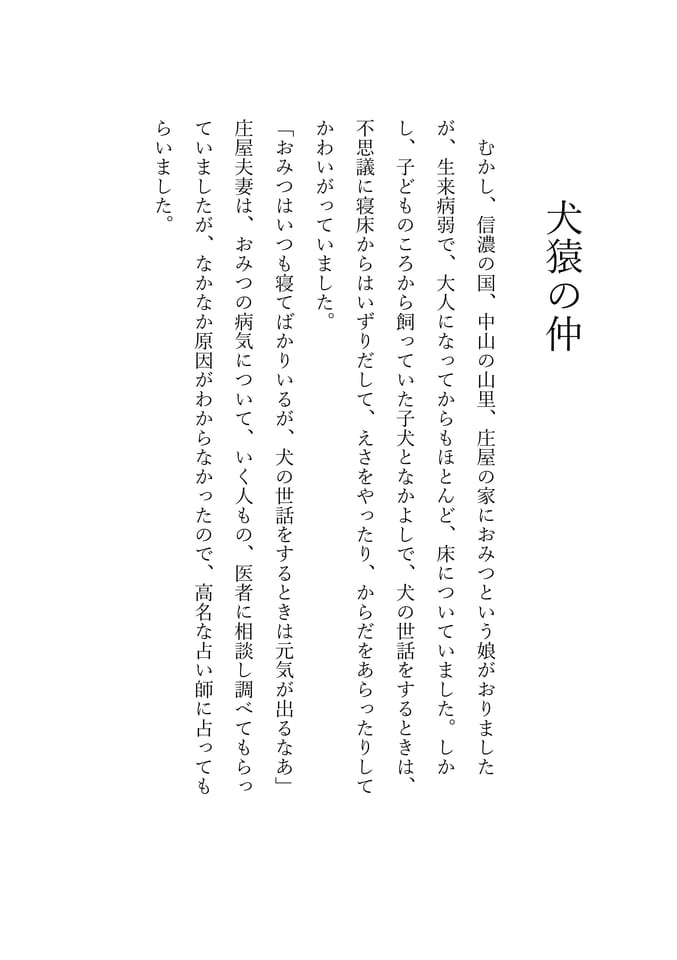 犬猿の仲
むかし、信濃の国、中山の山里、庄屋の家におみつという娘がおりました
が、生来病弱で、大人になってからもほとんど、床についていました。しか
し、子どものころから飼っていた子犬となかよしで、犬の世話をするときは、
不思議に寝床からはいずりだして、えさをやったり、からだをあらったりして
かわいがっていました。
「おみつはいつも寝てばかりいるが、犬の世話をするときは元気が出るなあ」
庄屋夫妻は、おみつの病気について、いく人もの、医者に相談し調べてもらっ
ていましたが、なかなか原因がわからなかったので、高名な占い師に占っても
らいました。